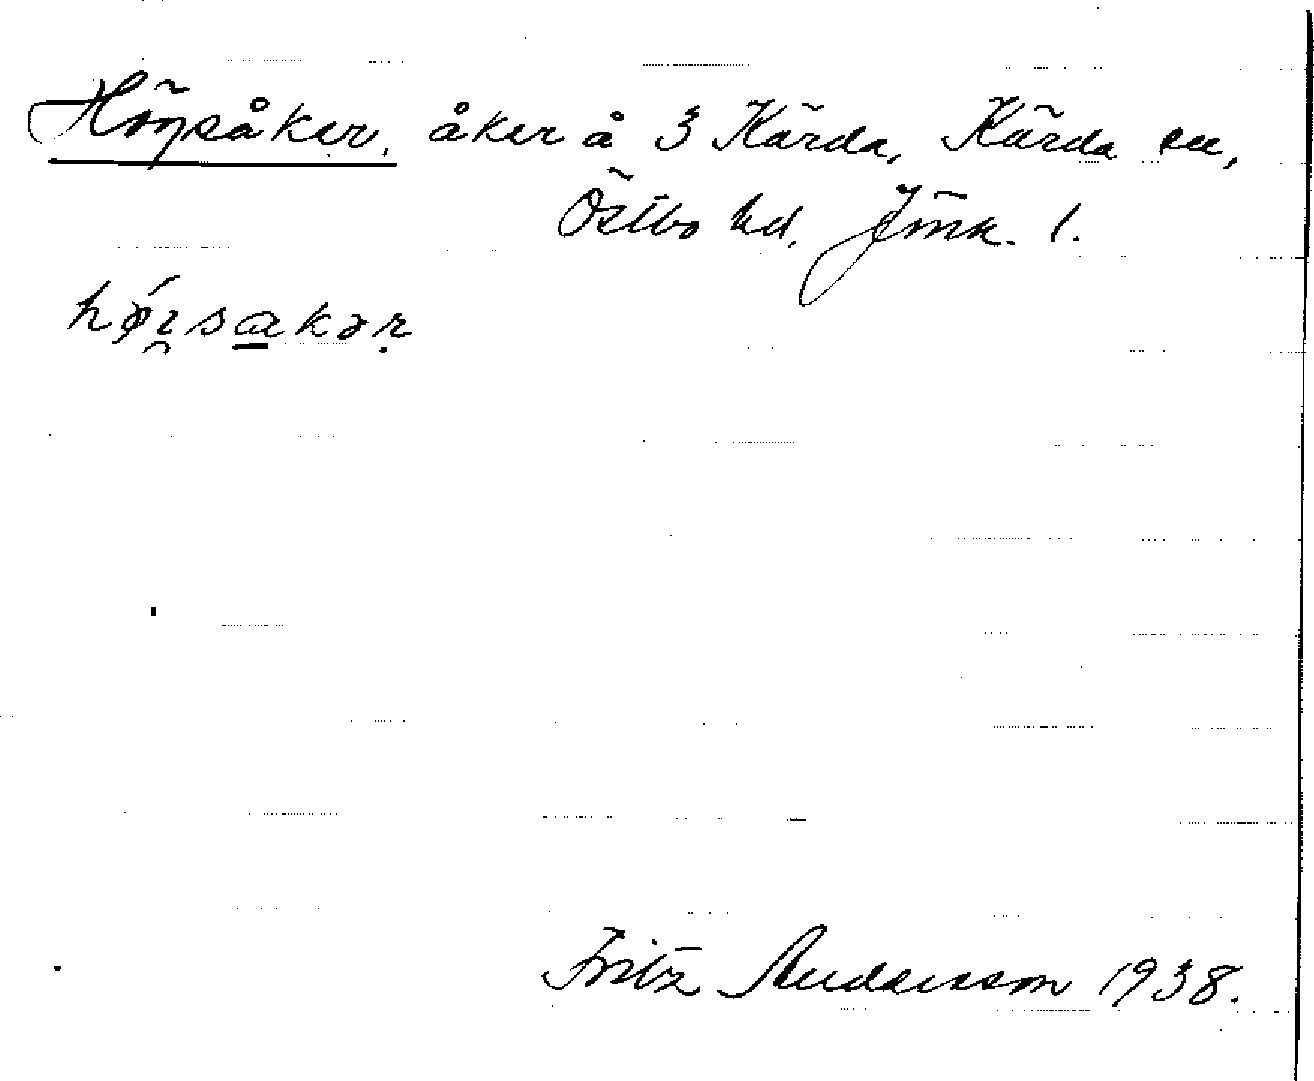 Höysåker, åker å 3 Kärda, Kärda sn,
Östbo hd, Jönk. l.
hǿi̯sa̲kəṛ
Fritz Andersson 1938.